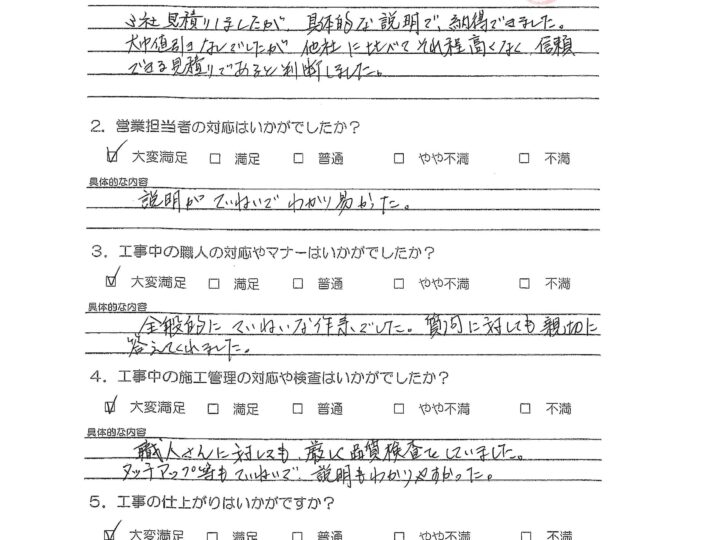 3社見積りしましたが、具体的な説明で、納得できました。
大巾値引きなしでしたが 他社に比べてそれ程高くなく、信頼
できる見積りであると判断しました。
2. 営業担当者の対応はいかがでしたか?
☑ 大変満足 □ 満足 □ 普通 □ やや不満 □ 不満
具体的な内容
説明が ていねいで わかり易かった。
3. 工事中の職人の対応やマナーはいかがでしたか?
☑ 大変満足 □ 満足 □ 普通 □ やや不満 □ 不満
具体的な内容
全般的に ていねいな作業でした。質問に対しても親切に
答えてくれました。
4. 工事中の施工管理の対応や検査はいかがでしたか?
☑ 大変満足 □ 満足 □ 普通 □ やや不満 □ 不満
具体的な内容
職人さんに対しても、厳しく品質検査をしていました。
タッチアップ等もていねいで、説明もわかりやすかった。
5. 工事の仕上がりはいかがですか?
☑ 大変満足 □ 満足 □ 普通 □ やや不満 □ 不満